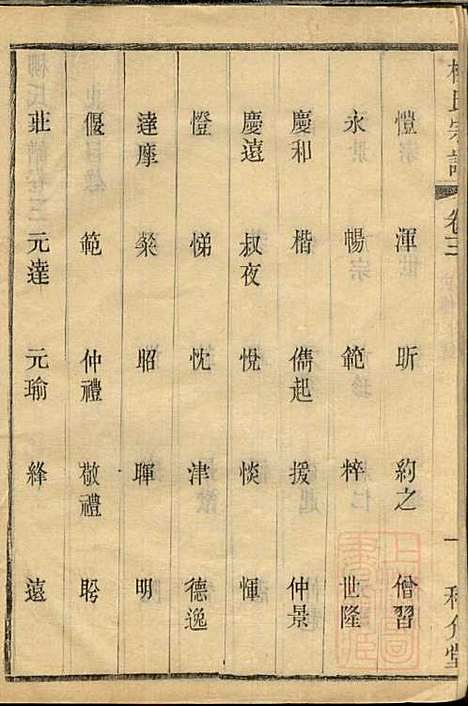 柳氏宗譜
卷三
一
愷 渾 昕 約之 僧習
永 暢 範 粹 世隆
慶和 楷 儁起 援 仲景
慶遠 叔夜 悅 惔 惲
憕 悌 忱 津 德逸
達摩 粲 昭 暉 明
偃 範 仲禮 敬禮 盻
莊 元達 元瑜 絳 遠